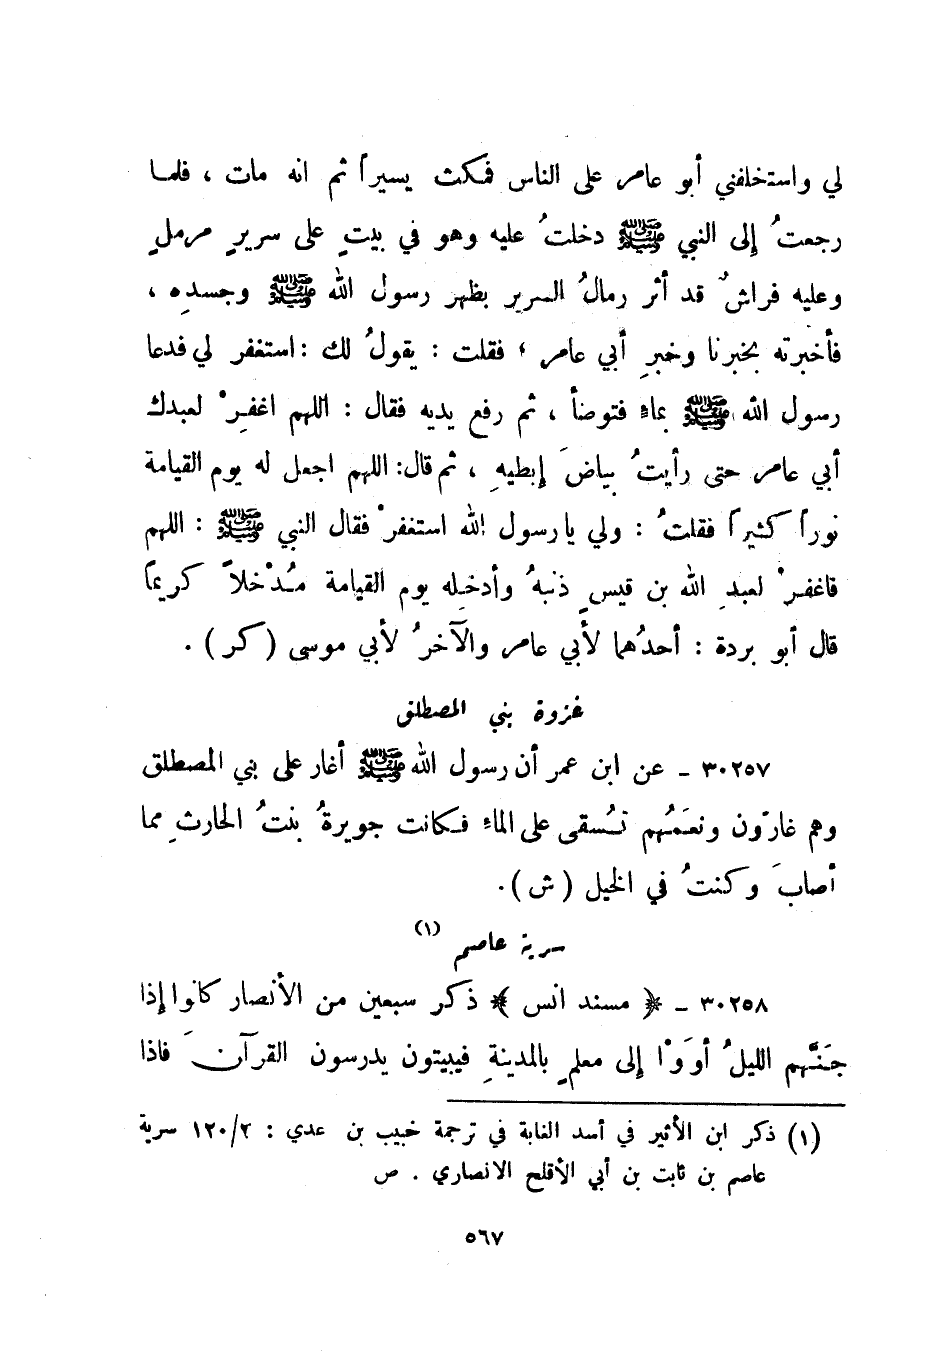 لي واستخلفني أبو عامر على الناس فمكث يسيراً ثم انه مات ، فلما
رجعتُ إلى النبي ﷺ دخلتُ عليه وهو في بيتٍ على سريرٍ مرملٍ
وعليه فراشٌ قد أثر رمالُ السرير بظهر رسول الله ﷺ وجسدِه ،
فأخبرته بخبرنا وخبرِ أبي عامر ، فقلت : يقولُ لك : استغفر لي فدعا
رسول الله ﷺ بماءٍ فتوضأ ، ثم رفع يديه فقال : اللهم اغفِرْ لعبدك
أبي عامر حتى رأيتُ بياضَ إبطيهِ ، ثم قال: اللهم اجعل له يوم القيامة
نوراً كثيراً فقلتُ : ولي يا رسول الله استغفرْ فقال النبي ﷺ : اللهم
فاغفرْ لعبدِ الله بن قيسٍ ذنبهُ وأدخِله يوم القيامة مُدْخلاً كريماً
قال أبو بردة : أحدُهما لأبي عامر والآخرُ لأبي موسى ( كر ) .
غزوة بني المصطلق
٣٠٢٥٧ ـ عن ابن عمر أن رسول الله ﷺ أغار على بني المصطلق
وهم غارّون ونعَمُهم تُسقى على الماءِ فكانت جويرةُ بنتُ الحارثِ مما
أصابَ وكنتُ في الخيل ( ش ) .
سرية عاصم (١)
٣٠٢٥٨ ـ ﴿ مسند انس ﴾ ذكر سبعين من الأنصار كانوا إذا
جَنَّهم الليلُ أوَوْا إلى معلمٍ بالمدينةِ فيبيتون يدرسون القرآنَ فاذا
(١) ذكر ابن الأثير في أسد الغابة في ترجمة خبيب بن عدي : ١٢٠/٢ سرية
عاصم بن ثابت بن أبي الأقلح الانصاري . ص
٥٦٧